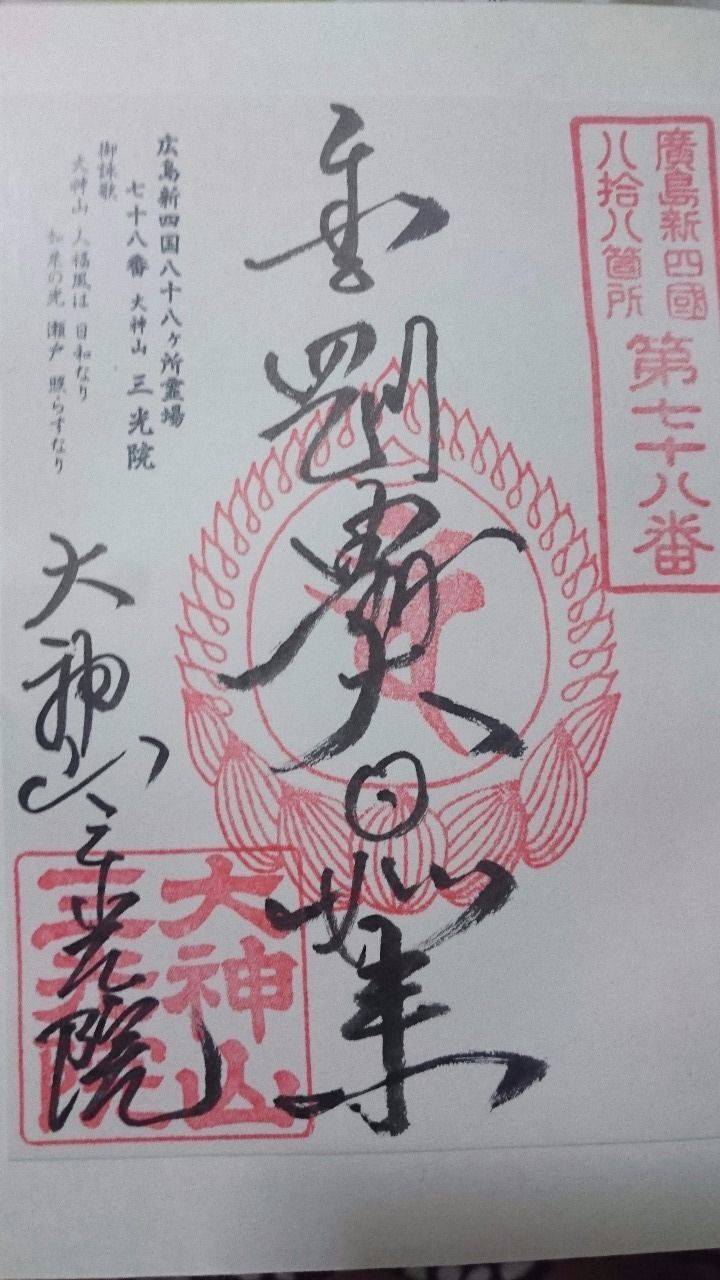 廣島新四國
八拾八箇所
第七十八番
金剛界大日如来
広島新四国八十八ヶ所霊場
七十八番 大神山 三光院
御詠歌
大神山 人福風は 日和なり
如来の光 瀬戸 照らすなり
大神山三光院
大神山
三光院